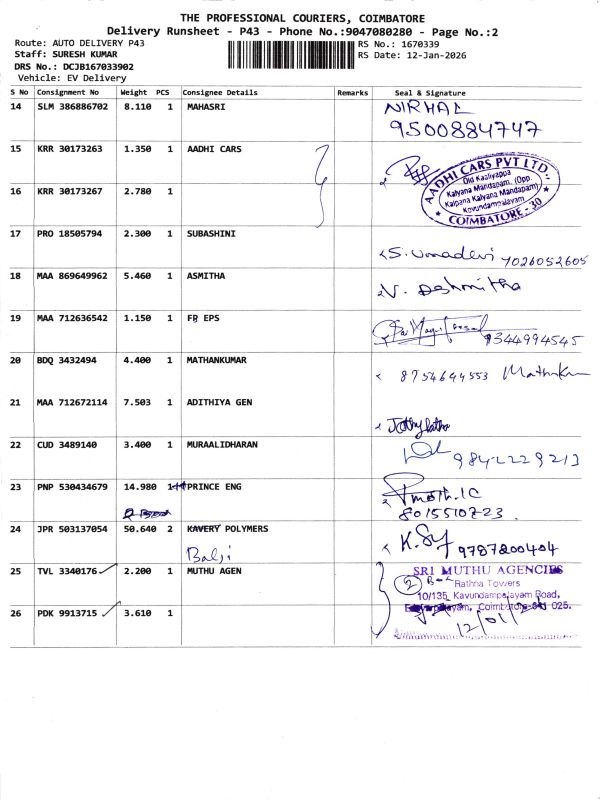 THE PROFESSIONAL COURIERS, COIMBATORE
Delivery Runsheet - P43 - Phone No.:9047080280 - Page No.:2
Route: AUTO DELIVERY P43 RS No.: 1670339
Staff: SURESH KUMAR RS Date: 12-Jan-2026
DRS No.: DCJB167033902
Vehicle: EV Delivery
S No Consignment No Weight PCS Consignee Details Remarks Seal & Signature
14 SLM 386886702 8.110 1 MAHASRI NIRHAL
9500884747
15 KRR 30173263 1.350 1 AADHI CARS
AADHI CARS PVT LTD.
Old Kaaliyappa
Kalyana Mandapam, (Opp.
Kalpana Kalyana Mandapam)
Kovundampalayam
COIMBATORE - 30
16 KRR 30173267 2.780 1
17 PRO 18505794 2.300 1 SUBASHINI
S. Umadevi 7026052605
18 MAA 869649962 5.460 1 ASMITHA
V. Ashmitha
19 MAA 712636542 1.150 1 FB EPS
9344994545
20 BDQ 3432494 4.400 1 MATHANKUMAR
8754644553
21 MAA 712672114 7.503 1 ADITHIYA GEN
22 CUD 3489140 3.400 1 MURAALIDHARAN
9842229213
23 PNP 530434679 14.980 1 PRINCE ENG
8015510723
24 JPR 503137054 50.640 2 KAVERY POLYMERS
Balji
K. 9787200404
25 TVL 3340176 2.200 1 MUTHU AGEN
SRI MUTHU AGENCIES
2 Rathna Towers
10/135, Kavundampalayam Road,
Coimbatore-641 025.
26 PDK 9913715 3.610 1
12/01/26